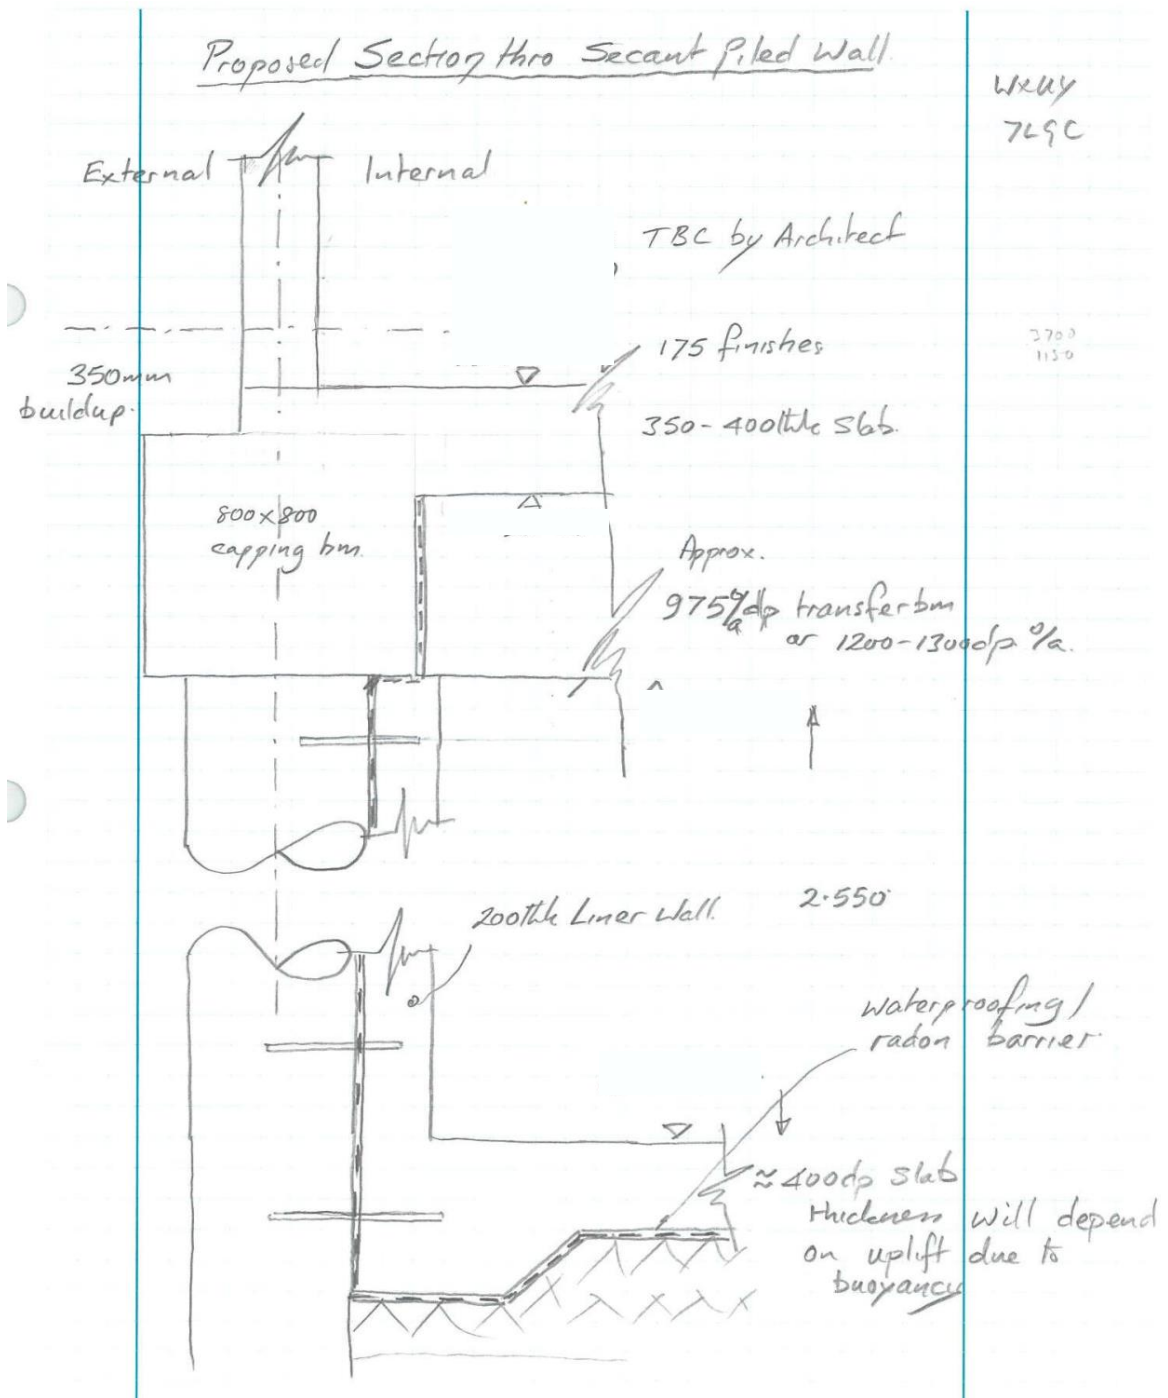 Proposed Section thro Secant Piled Wall.
External
Internal
TBC by Architect
175 finishes
3700
1150
350mm
buildup.
350-400thk Slab.
800x800
capping bm.
Approx.
975 o/a dp transfer bm
or 1200-1300dp o/a.
200thk Liner Wall.
2.550
waterproofing/
radon barrier.
≈400dp Slab
thickness will depend
on uplift due to
buoyancy